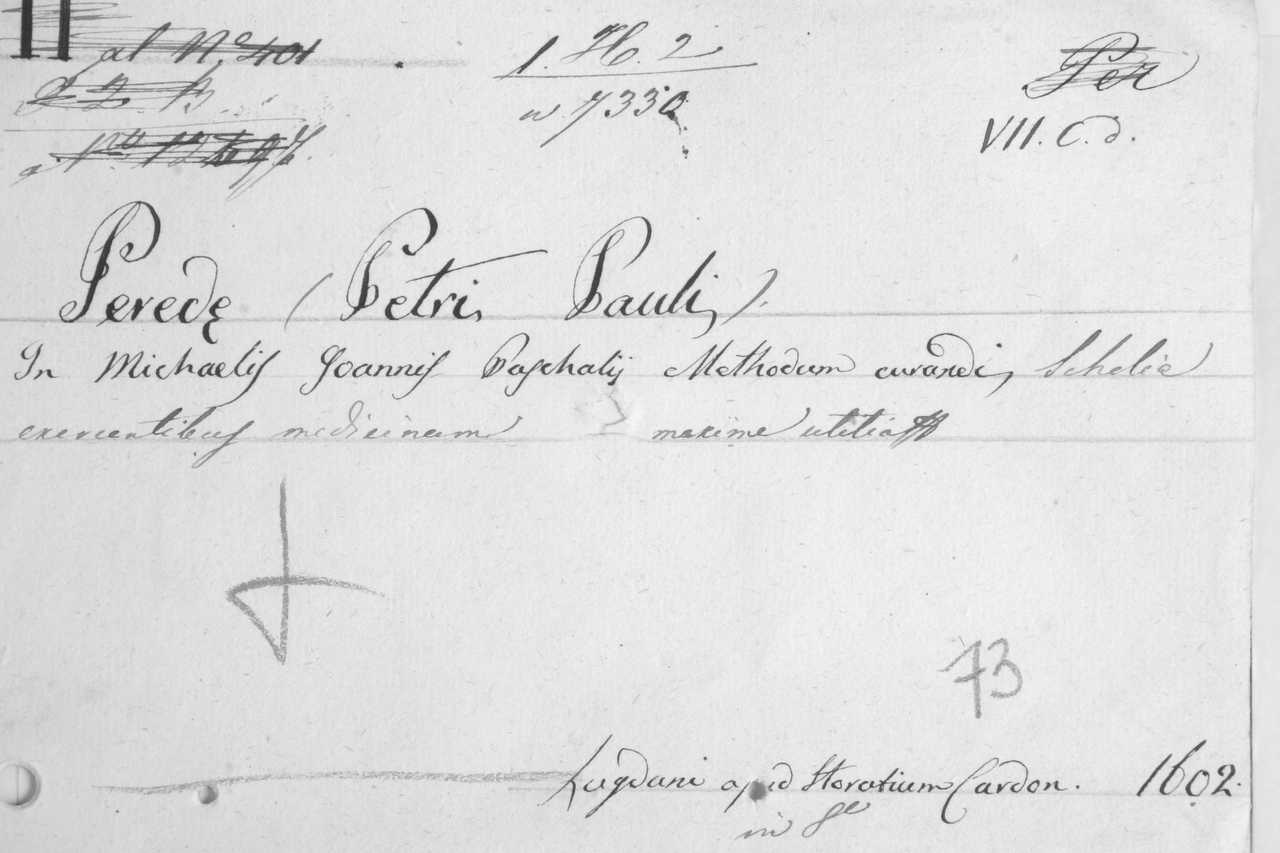 II al N.º 401 1. H. 2 Per
2 2 B w 7330 VII. C. d.
Peredę (Petri, Pauli,).
In Michaelis Joannis Paschalij Methodum curandi, Scholia
exercentibus medicinam maxime utilia
73
Lugduni apud Horatium Cardon. 1602.
in 8º